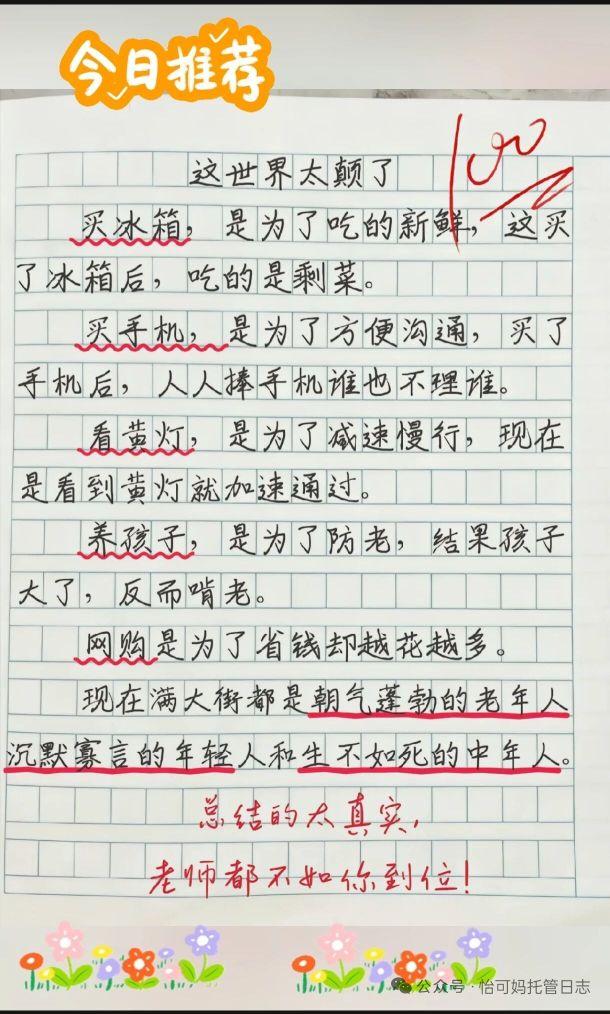 今日推荐
100
这世界太颠了
买冰箱，是为了吃的新鲜，这买
了冰箱后，吃的是剩菜。
买手机，是为了方便沟通，买了
手机后，人人捧手机谁也不理谁。
看黄灯，是为了减速慢行，现在
是看到黄灯就加速通过。
养孩子，是为了防老，结果孩子
大了，反而啃老。
网购是为了省钱却越花越多。
现在满大街都是朝气蓬勃的老年人
沉默寡言的年轻人和生不如死的中年人。
总结的太真实，
老师都不如你到位！
公众号·怡可妈托管日志